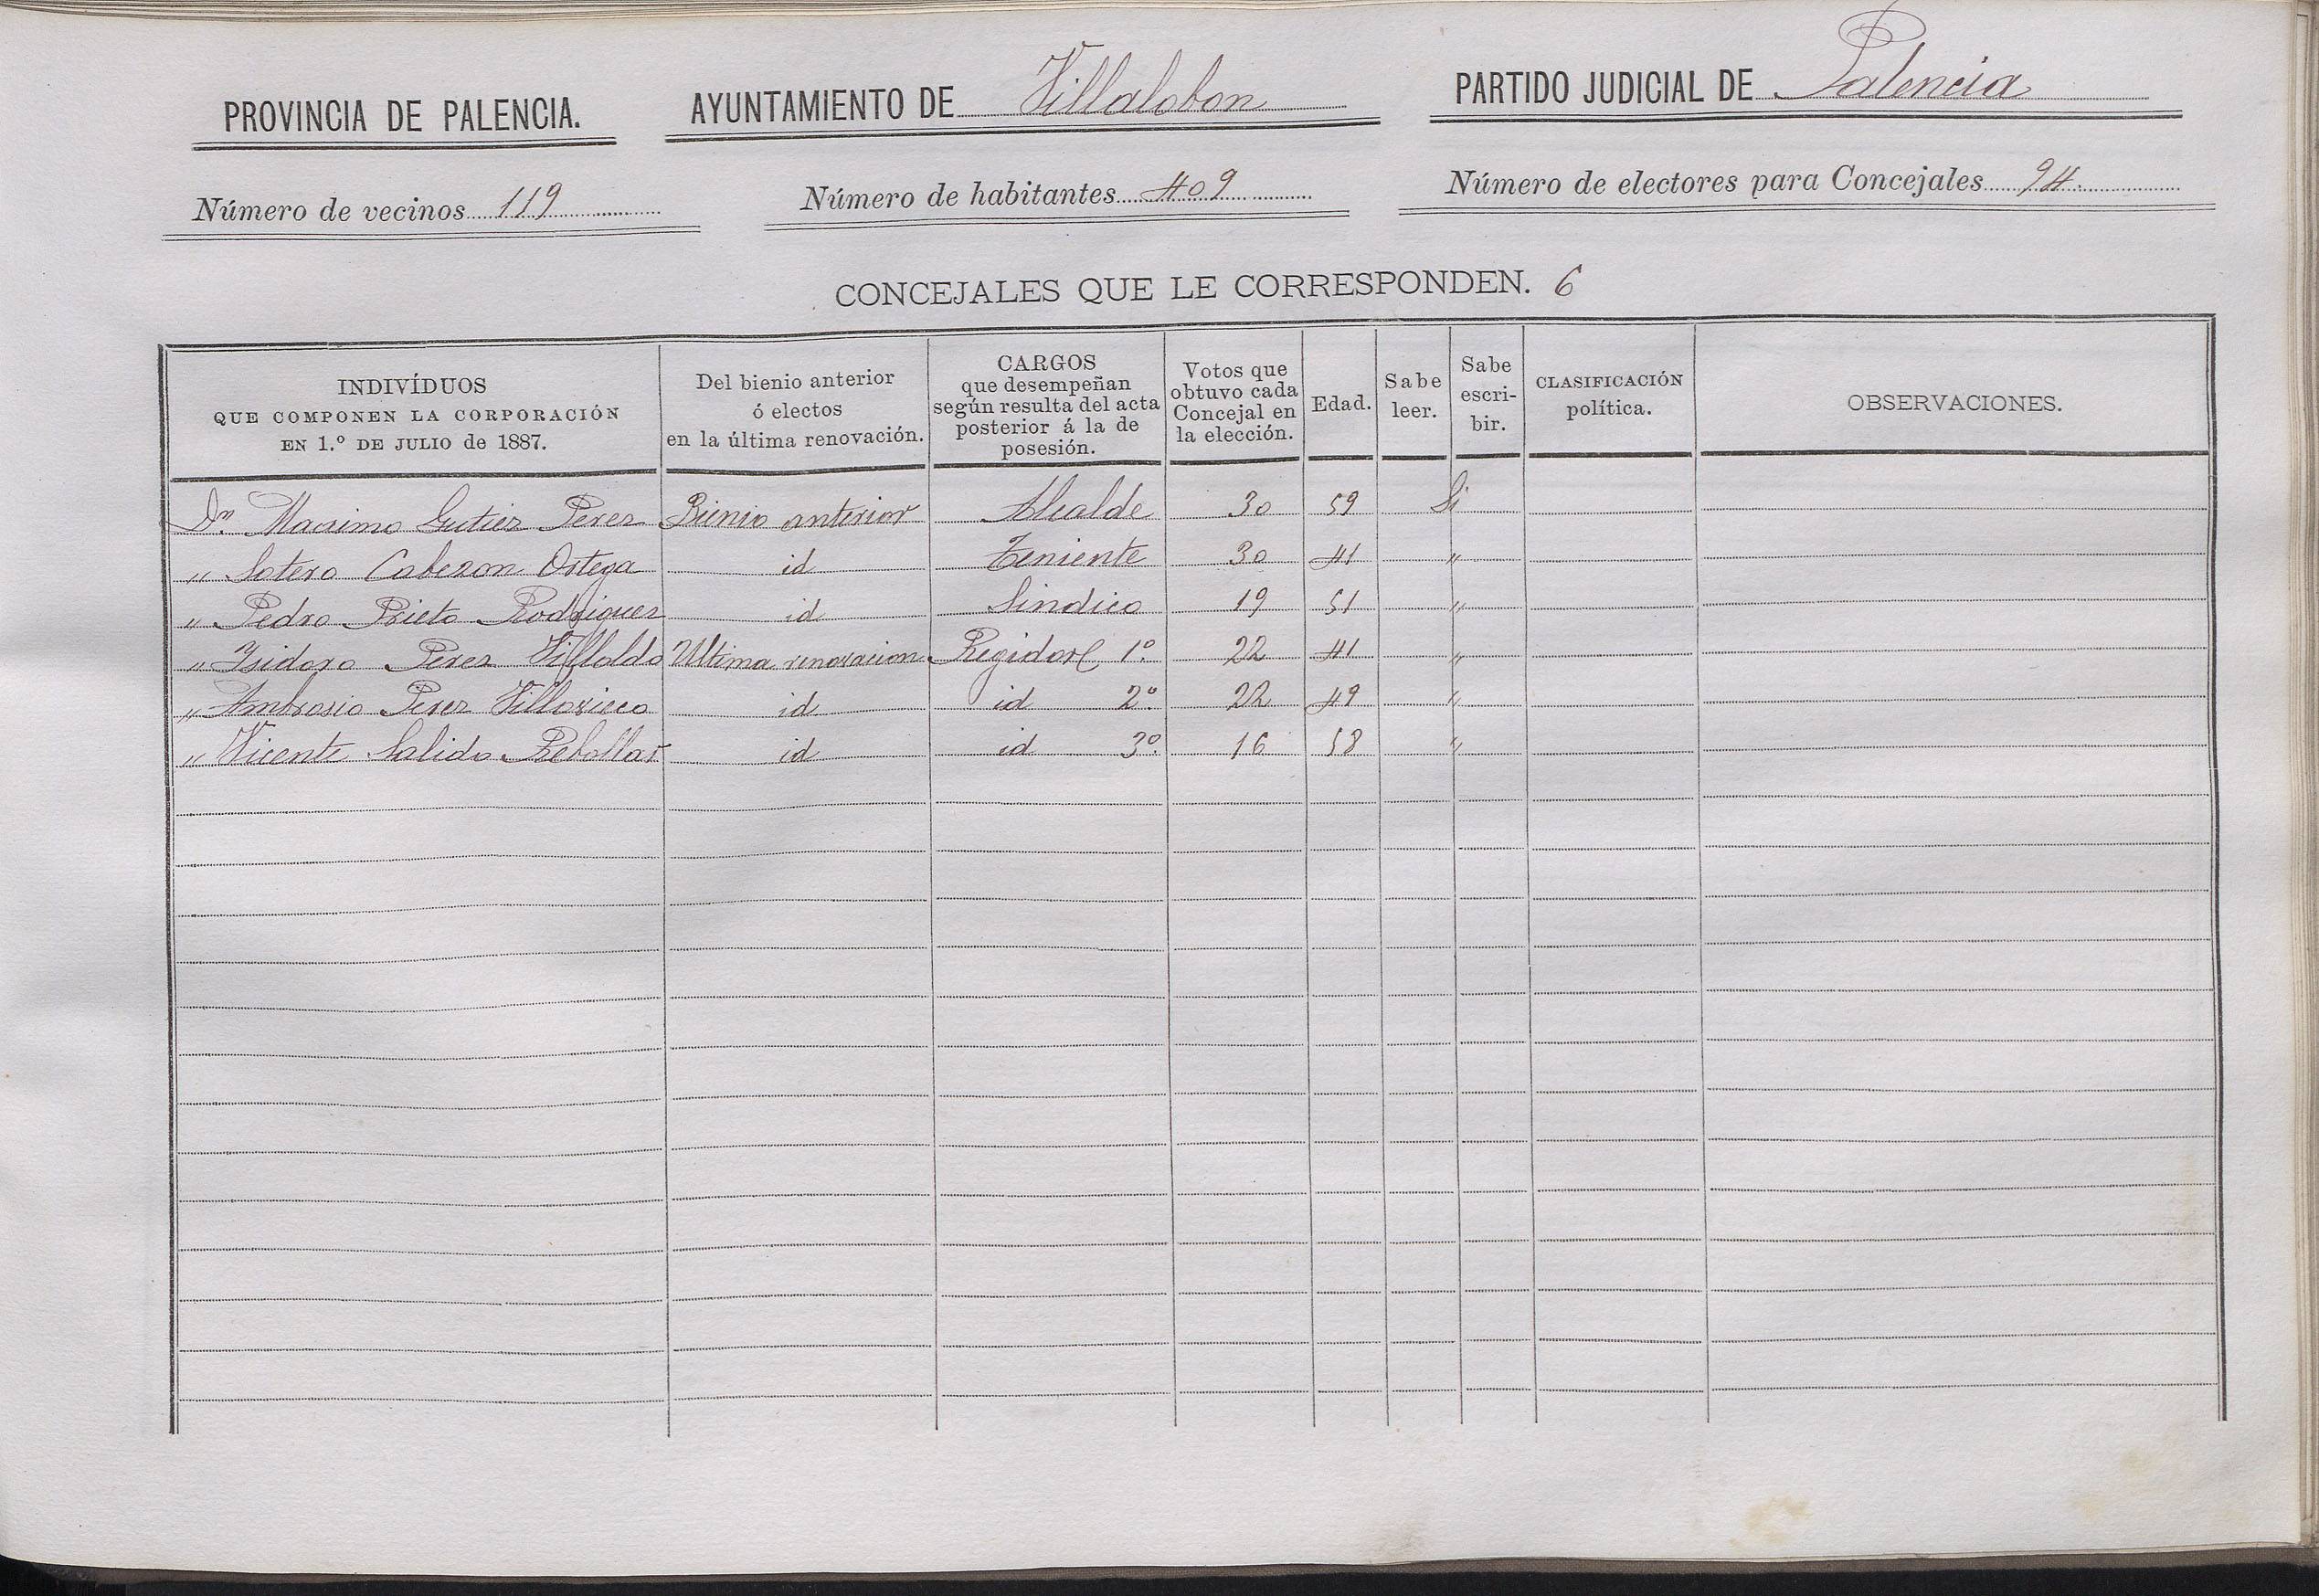 PROVINCIA DE PALENCIA. AYUNTAMIENTO DE Villalobon PARTIDO JUDICIAL DE Palencia
Número de vecinos 119 Número de habitantes 409 Número de electores para Concejales 94.
CONCEJALES QUE LE CORRESPONDEN. 6
INDIVÍDUOS
QUE COMPONEN LA CORPORACIÓN
EN 1.º DE JULIO de 1887.
Del bienio anterior
ó electos
en la última renovación.
CARGOS
que desempeñan
según resulta del acta
posterior á la de
posesión.
Votos que
obtuvo cada
Concejal en
la elección.
Edad.
Sabe
leer.
Sabe
escri-
bir.
CLASIFICACIÓN
política.
OBSERVACIONES.
Dn. Maximo Gutiez Perez Bienio anterior Alcalde 30 59 Si
" Sotero Cabezon Ortega id Teniente 30 41 "
" Pedro Prieto Rodriguez id Sindico 19 51 "
" Ysidoro Perez Villoldo Ultima renovacion Regidor 1º. 22 41 "
" Ambrosio Perez id id 2º. 22 49 "
" Vicente Salido Rebollar id id 3º. 16 58 "